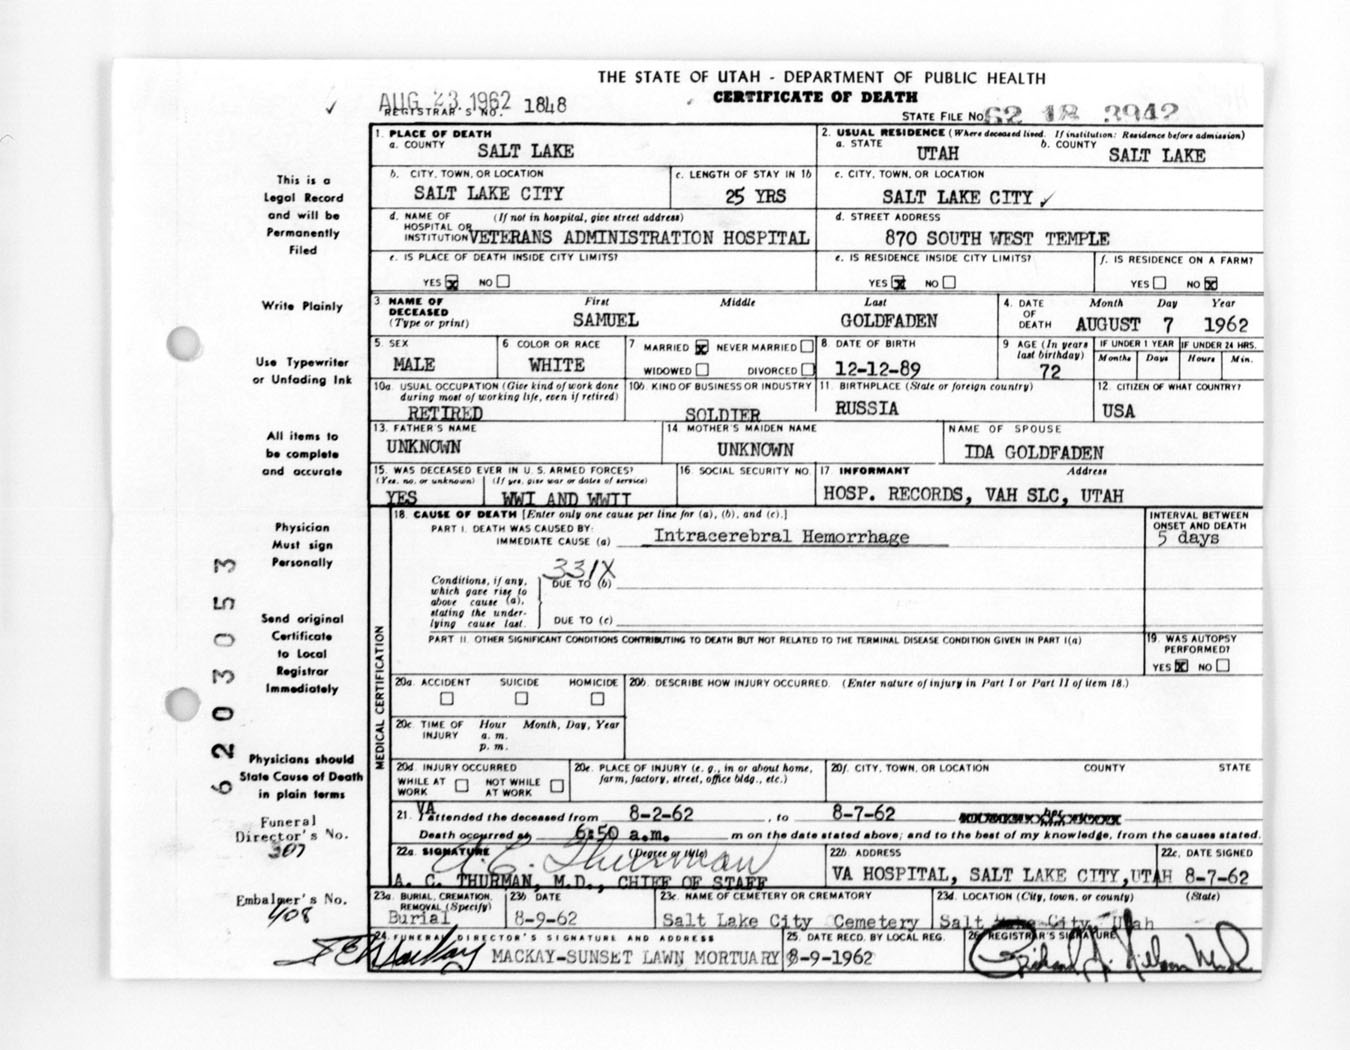 THE STATE OF UTAH - DEPARTMENT OF PUBLIC HEALTH
CERTIFICATE OF DEATH
AUG 23 1962 1848
REGISTRAR'S NO.
STATE FILE NO. 62 18 3942
1. PLACE OF DEATH
a. COUNTY SALT LAKE
2. USUAL RESIDENCE (Where deceased lived. If institution: Residence before admission)
a. STATE UTAH b. COUNTY SALT LAKE
b. CITY, TOWN, OR LOCATION SALT LAKE CITY
c. LENGTH OF STAY IN 1b 25 YRS
c. CITY, TOWN, OR LOCATION SALT LAKE CITY
d. NAME OF HOSPITAL OR INSTITUTION (If not in hospital, give street address) VETERANS ADMINISTRATION HOSPITAL
d. STREET ADDRESS 870 SOUTH WEST TEMPLE
e. IS PLACE OF DEATH INSIDE CITY LIMITS?
YES X NO
e. IS RESIDENCE INSIDE CITY LIMITS?
YES X NO
f. IS RESIDENCE ON A FARM?
YES NO X
3 NAME OF DECEASED (Type or print)
First Middle Last
SAMUEL GOLDFADEN
4. DATE OF DEATH Month Day Year
AUGUST 7 1962
5. SEX MALE
6 COLOR OR RACE WHITE
7 MARRIED X NEVER MARRIED
WIDOWED DIVORCED
8 DATE OF BIRTH 12-12-89
9 AGE (In years last birthday) 72
IF UNDER 1 YEAR Months Days
IF UNDER 24 HRS. Hours Min.
10a. USUAL OCCUPATION (Give kind of work done during most of working life, even if retired)
RETIRED
10b. KIND OF BUSINESS OR INDUSTRY
SOLDIER
11. BIRTHPLACE (State or foreign country)
RUSSIA
12. CITIZEN OF WHAT COUNTRY?
USA
13. FATHER'S NAME
UNKNOWN
14 MOTHER'S MAIDEN NAME
UNKNOWN
NAME OF SPOUSE
IDA GOLDFADEN
15. WAS DECEASED EVER IN U.S. ARMED FORCES?
(Yes, no, or unknown) (If yes, give war or dates of service)
YES WWI AND WWII
16 SOCIAL SECURITY NO.
17 INFORMANT Address
HOSP. RECORDS, VAH SLC, UTAH
18. CAUSE OF DEATH [Enter only one cause per line for (a), (b), and (c).]
PART I. DEATH WAS CAUSED BY:
IMMEDIATE CAUSE (a) Intracerebral Hemorrhage
INTERVAL BETWEEN ONSET AND DEATH
5 days
331X
Conditions, if any, which gave rise to above cause (a), stating the underlying cause last.
DUE TO (b)
DUE TO (c)
PART II. OTHER SIGNIFICANT CONDITIONS CONTRIBUTING TO DEATH BUT NOT RELATED TO THE TERMINAL DISEASE CONDITION GIVEN IN PART I(a)
19. WAS AUTOPSY PERFORMED?
YES X NO
MEDICAL CERTIFICATION
20a. ACCIDENT SUICIDE HOMICIDE
20b. DESCRIBE HOW INJURY OCCURRED. (Enter nature of injury in Part I or Part II of item 18.)
20c. TIME OF INJURY Hour Month, Day, Year
a. m.
p. m.
20d. INJURY OCCURRED
WHILE AT WORK NOT WHILE AT WORK
20e. PLACE OF INJURY (e. g., in or about home, farm, factory, street, office bldg., etc.)
20f. CITY, TOWN, OR LOCATION COUNTY STATE
21. VA attended the deceased from 8-2-62, to 8-7-62
Death occurred at 6:50 a.m. m on the date stated above; and to the best of my knowledge, from the causes stated.
22a. SIGNATURE (Degree or title)
A. C. Thurman
A. C. THURMAN, M.D., CHIEF OF STAFF
22b. ADDRESS
VA HOSPITAL, SALT LAKE CITY, UTAH
22c. DATE SIGNED
8-7-62
23a. BURIAL, CREMATION, REMOVAL (Specify)
Burial
23b. DATE
8-9-62
23c. NAME OF CEMETERY OR CREMATORY
Salt Lake City Cemetery
23d. LOCATION (City, town, or county) (State)
Salt Lake City, Utah
24. FUNERAL DIRECTOR'S SIGNATURE AND ADDRESS
MACKAY-SUNSET LAWN MORTUARY
25. DATE RECD. BY LOCAL REG.
8-9-1962
26. REGISTRAR'S SIGNATURE
This is a
Legal Record
and will be
Permanently
Filed
Write Plainly
Use Typewriter
or Unfading Ink
All items to
be complete
and accurate
Physician
Must sign
Personally
Send original
Certificate
to Local
Registrar
Immediately
Physicians should
State Cause of Death
in plain terms
Funeral
Director's No.
307
Embalmer's No.
408
620303053